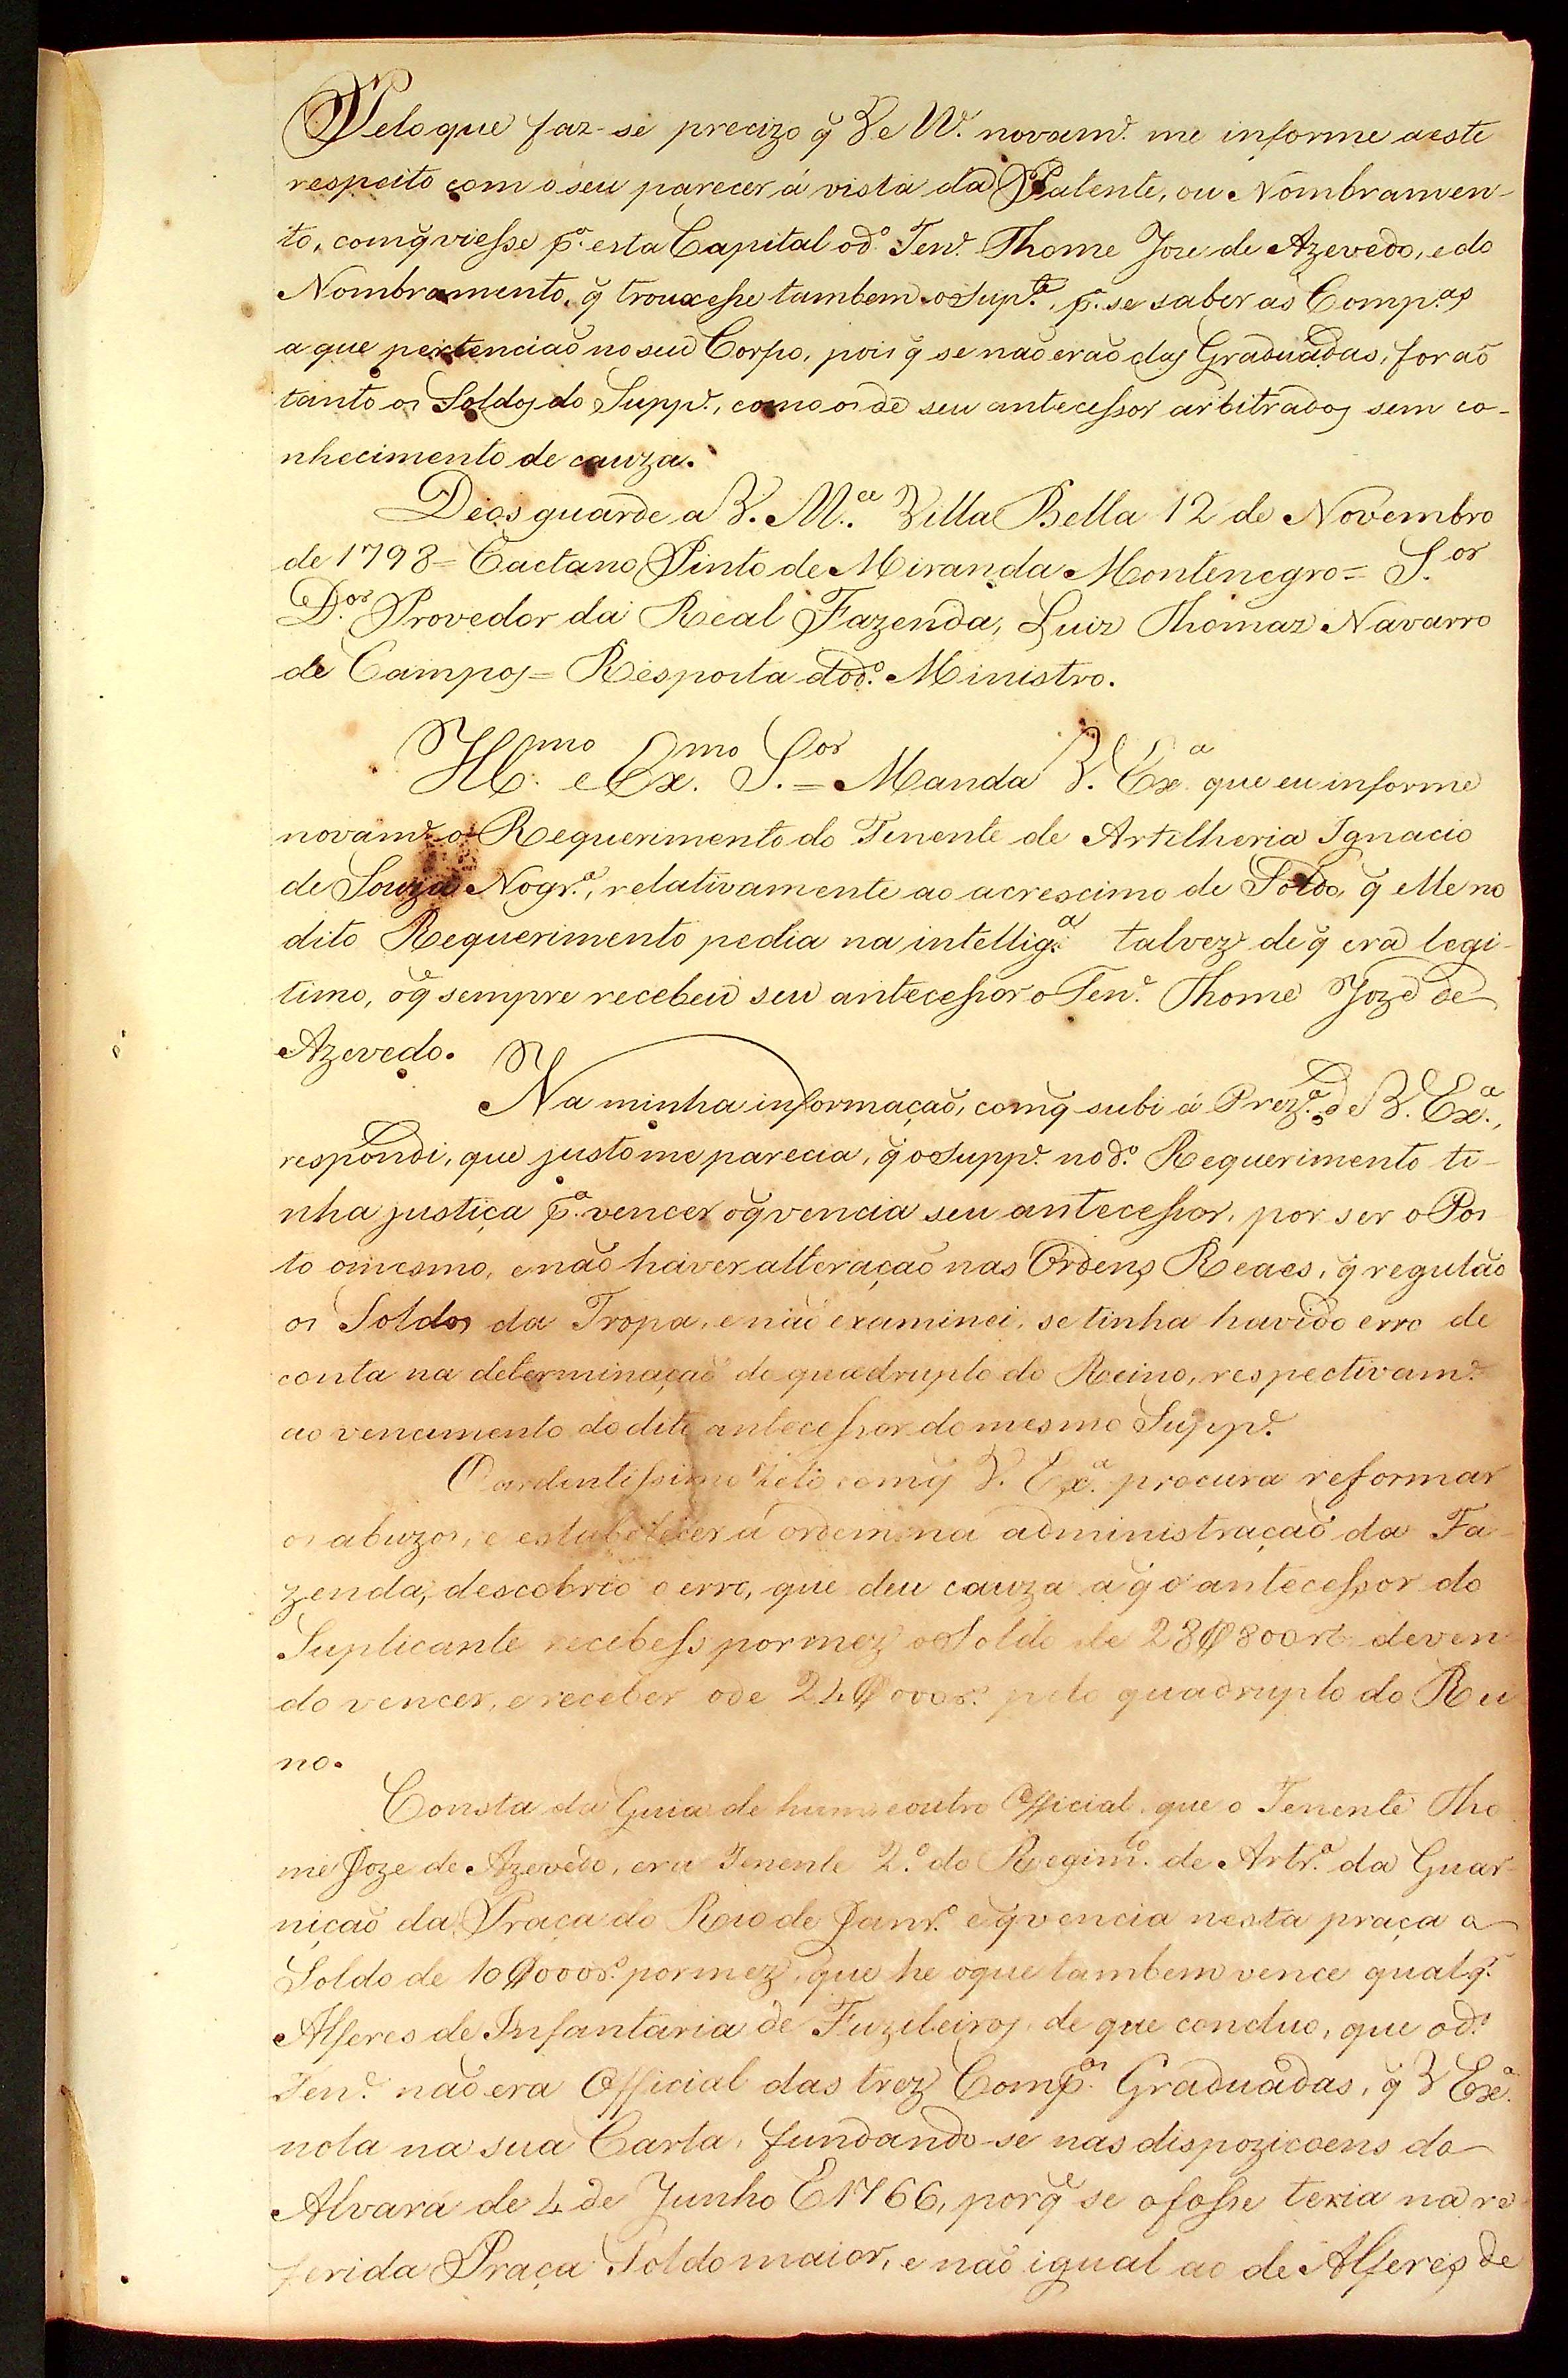 Pelo que faz-se precizo q̃ V e M.ce novam.e me informe a este
respeito com o seu parecer á vista da Patente, ou Nombramen-
to, com q̃ viesse p.a esta Capital o d.o Ten.e Thome Joze de Azevedo, e do
Nombramento, q̃ trouxesse tambem o Sup.te, p.a se saber as Comp.as
a que pertenciaõ no seu Corpo, pois q̃ se naõ eraõ das Graduadas, foraõ
tanto os Soldos do Supp.e, como os de seu antecessor arbitrados sem co-
nhecimento de cauza.
Deos guarde a V. M.ce Villa Bella 12 de Novembro
de 1798 = Caetano Pinto de Miranda Montenegro = S.or
D.or Provedor da Real Fazenda, Luiz Thomaz Navarro
de Campos = Resposta do d.o Ministro.
Ill.mo e Ex.mo S.or = Manda V. Ex.a que eu informe
novam.e o Requerimento do Tenente de Artilheria Ignacio
de Souza Nogr.a, relativamente ao acrescimo de Soldo, q̃ elle no
dito Requerimento pedia na intellig.a talvez de q̃ era legi-
timo, o q̃ sempre recebeu seu antecessor o Ten.e Thome Joze de
Azevedo.
Na minha informaçaõ, com q̃ subi á Prez.a de V. Ex.a,
respondi, que justo me parecia, q̃ o Supp.e no d.o Requerimento ti-
nha justiça p.a vencer o q̃ vencia seu antecessor, por ser o Pos-
to o mesmo, e naõ haver alteraçaõ nas Ordens Reaes, q̃ regulaõ
os Soldos da Tropa, e naõ examinei, se tinha havido erro de
conta na determinaçaõ do quadruplo do Reino, respectivam.e
ao vencimento do dito antecessor do mesmo Supp.e
O ardentissimo zelo com q̃ V. Ex.a procura reformar
os abuzos, e estabelecer a ordem na administraçaõ da Fa-
zenda, descobrio o erro, que deu cauza a q̃ o antecessor do
Suplicante recebess por mez o Soldo de 28$800 r.s deven-
do vencer, e receber o de 24$000 r.s pelo quadruplo do Rei-
no.
Consta da Guia de hum e outro Official, que o Tenente Tho-
me Joze de Azevedo, era Tenente 2.o do Regim.to de Artr.a da Guar-
niçaõ da Praça do Rio de Janr.o e q̃ vencia nesta praça o
Soldo de 10$000 r.s por mez, que he o que tambem vence qualq.r
Alferes de Infantaria de Fuzileiros, de que concluo, que o d.o
Ten.e naõ era Official das trez Comp.as Graduadas, q̃ V Ex.a
nota na sua Carta, fundando-se nas dispozicoens do
Alvará de 4 de Junho E 1766, porq̃ se o fosse teria na re-
ferida Praça Soldo maior, e naõ igual ao de Alferes de